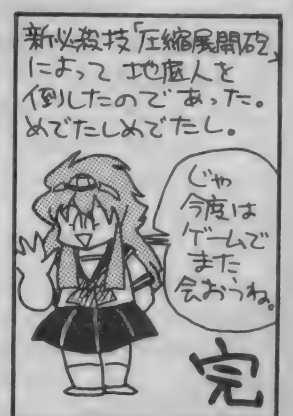 新必殺技「圧縮展開砲」
によって 地底人を
倒したのであった。
めでたしめでたし。
じゃ
今度は
ゲームで
また
会おうね。
完